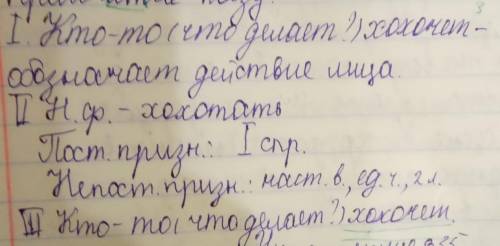 I. Кто-то (что делает?) хохочет-
обозначает действие лица.
II Н.ф. - хохотать
Пост. призн.: I спр.
Непост. призн.: наст. в., ед. ч., 2 л.
III Кто-то (что делает?) хохочет.